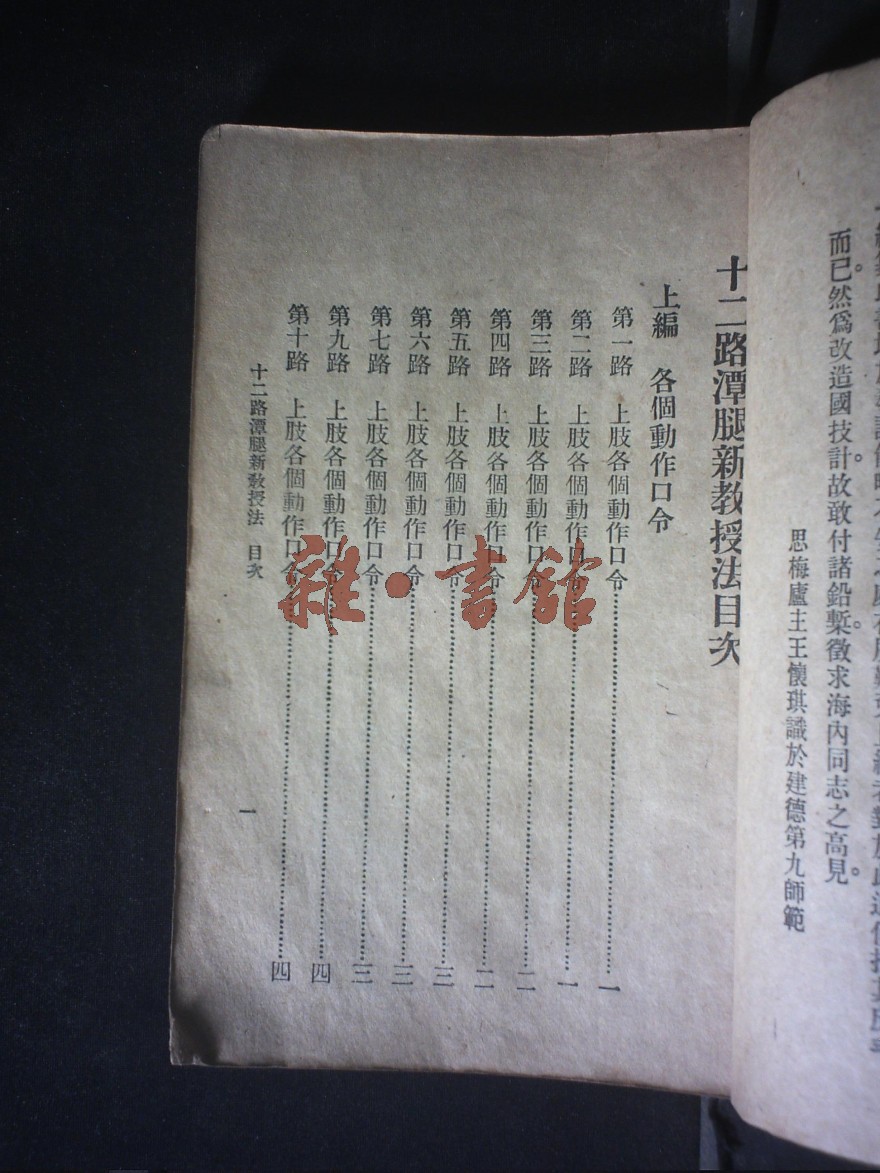 而已。然爲改造國技計。故敢付諸鉛槧。徵求海內同志之高見。
思梅廬主王懷琪識於建德第九師範
十二路潭腿新教授法目次
上編　各個動作口令
第一路　上肢各個動作口令…………一
第二路　上肢各個動作口令…………一
第三路　上肢各個動作口令…………二
第四路　上肢各個動作口令…………二
第五路　上肢各個動作口令…………三
第六路　上肢各個動作口令…………三
第七路　上肢各個動作口令…………三
第九路　上肢各個動作口令…………四
第十路　上肢各個動作口令…………四
十二路潭腿新教授法　目次
一
雜·書館